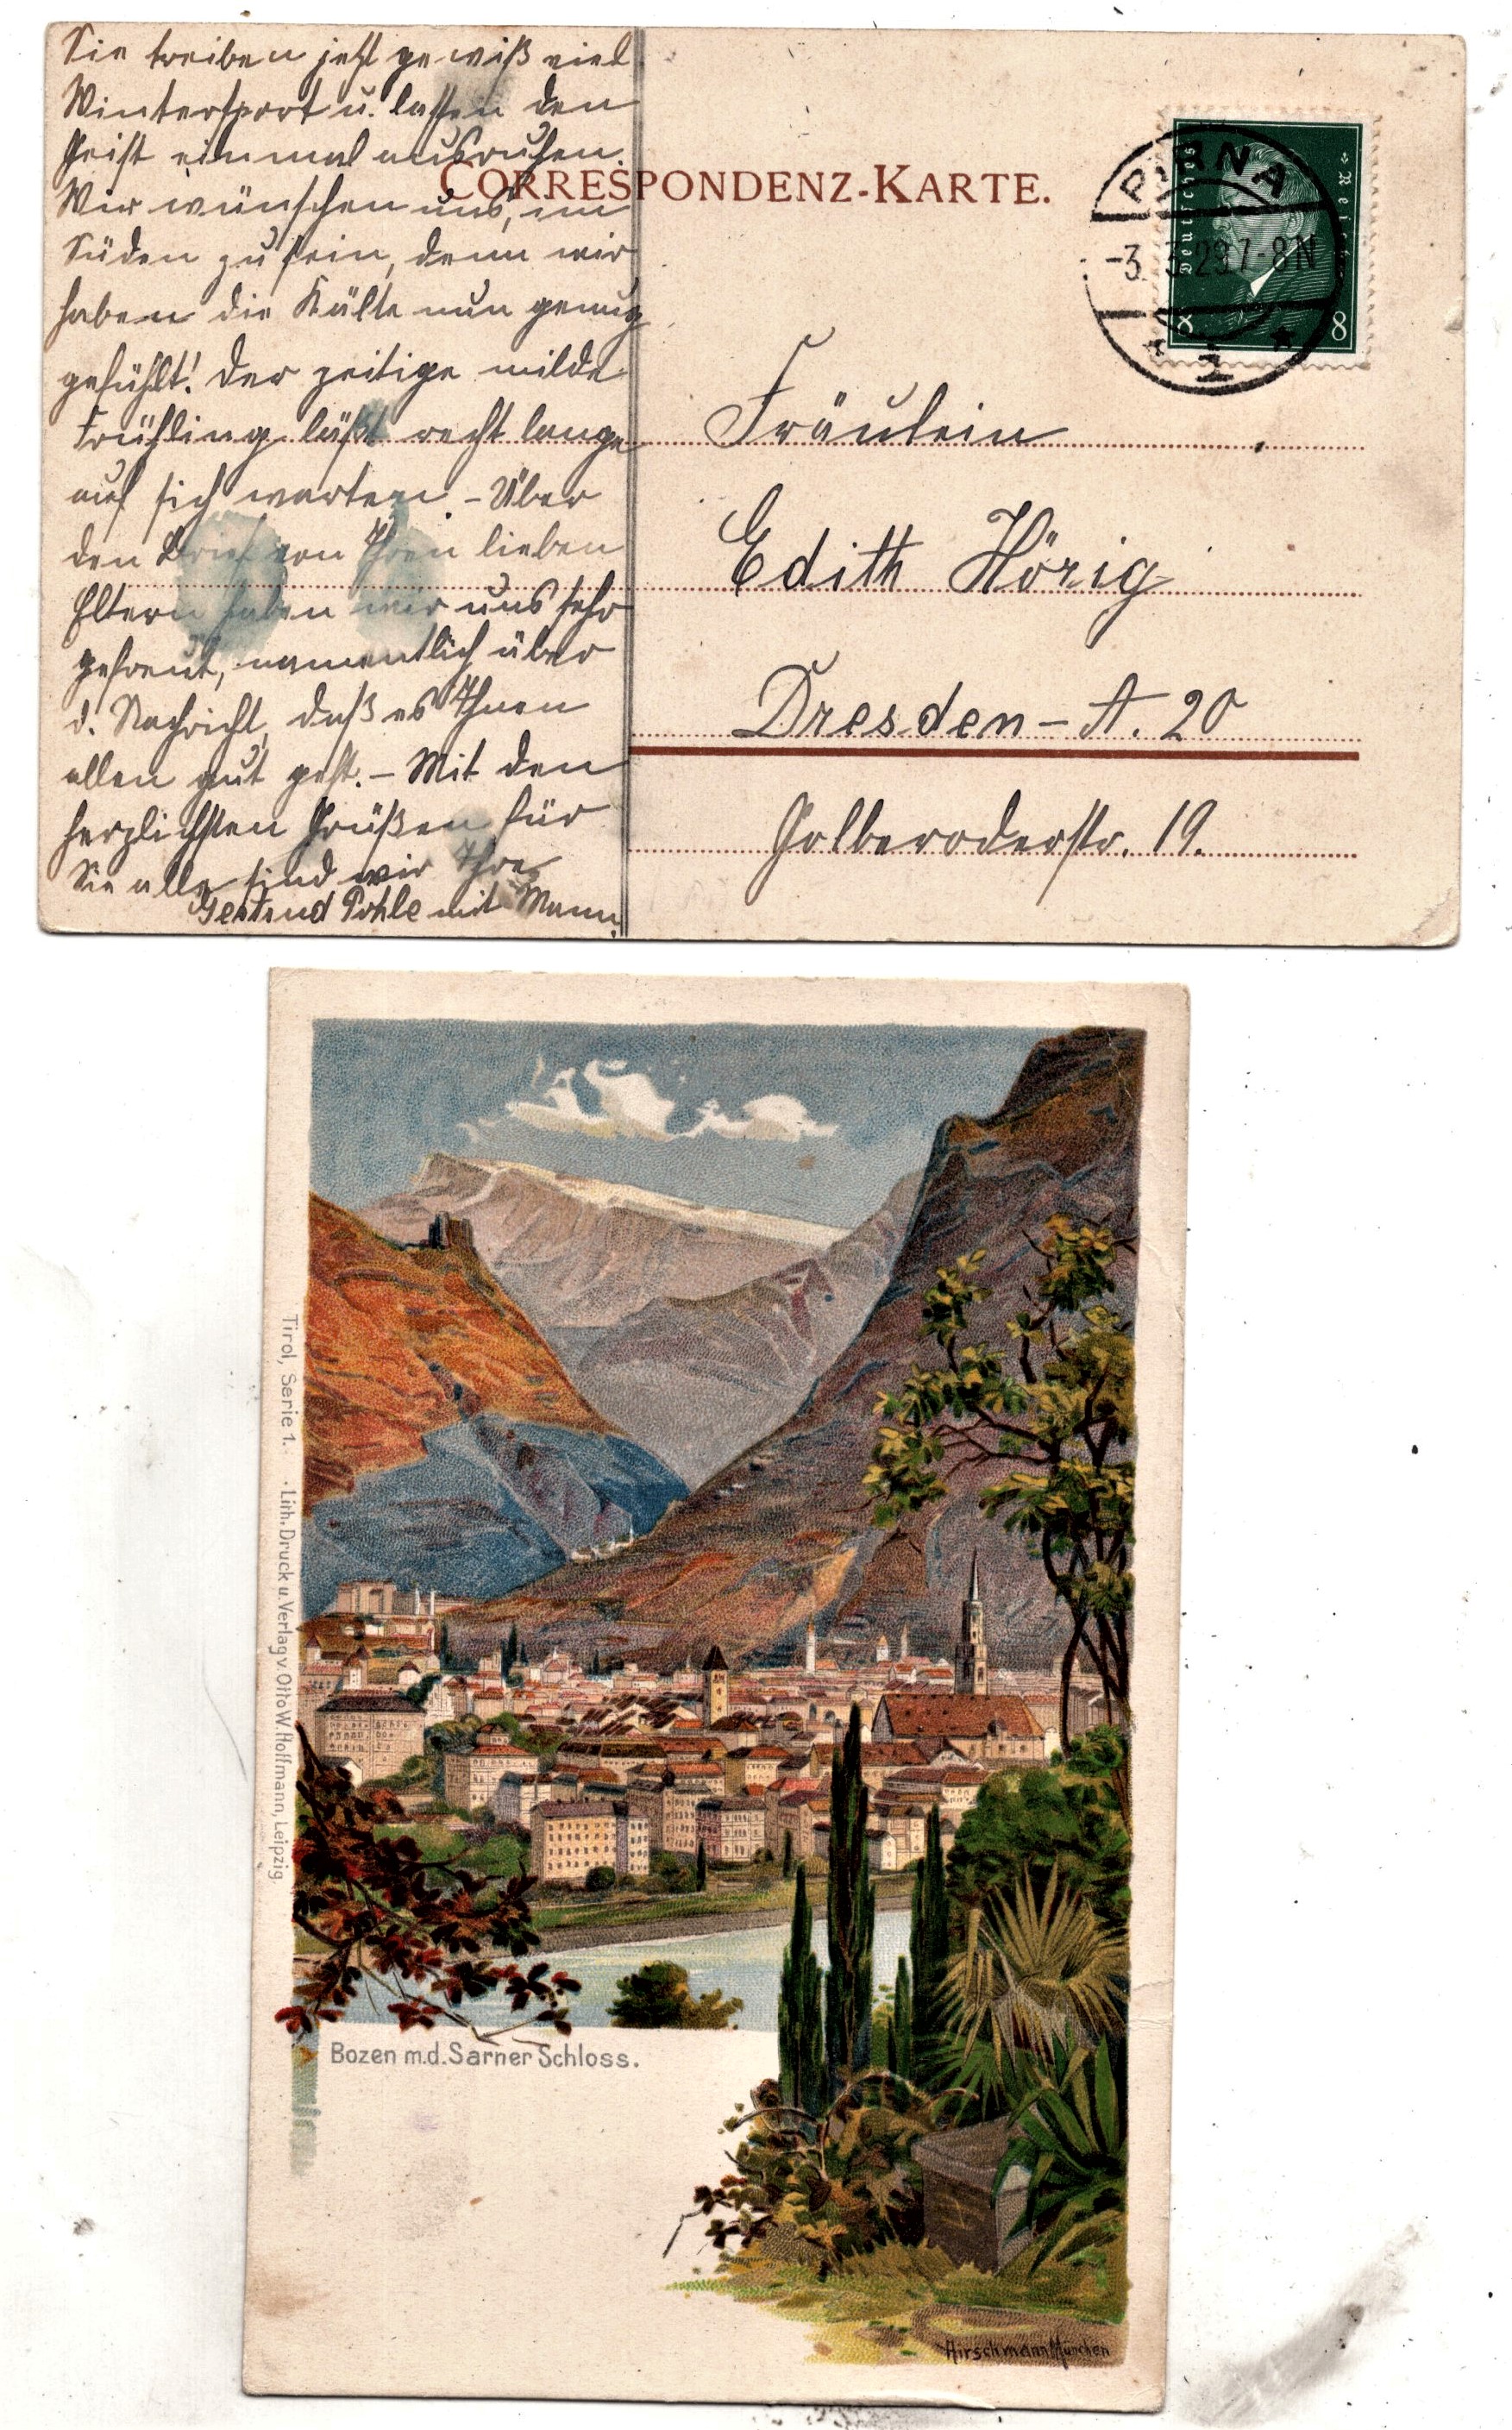 Sie treiben jetzt gewiß viel
Wintersport u. lassen den
Geist einmal ausruhen.
Wir wünschen uns, im
Süden zu sein, denn wir
haben die Kälte nun genug
gefühlt! Der zeitige milde
Frühling läßt recht lange
auf sich warten. – Über
den Brief von Ihren lieben
Eltern haben wir uns sehr
gefreut, namentlich über
d. Nachricht, daß es Ihnen
allen gut geht. – Mit den
herzlichsten Grüßen für
Sie alle sind wir Ihre
Gertrud Pohle mit Mann.
CORRESPONDENZ-KARTE.
PIRNA
-3.3.29.7-8N
Deutsches Reich
8 8
Fräulein
Edith Hörig
Dresden – A. 20
Golberoderstr. 19.
Tirol, Serie 1. · Lith. Druck u. Verlag v. Otto W. Hoffmann, Leipzig.
Bozen m.d. Sarner Schloss.
Hirschmann München